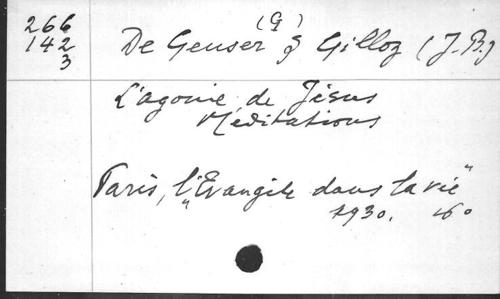 266
142
3
De Geuser (G) & Gilloz (J.B.)
L'agonie de Jésus
Méditations
Paris, l'„Evangile dans la vie"
1930. 16°